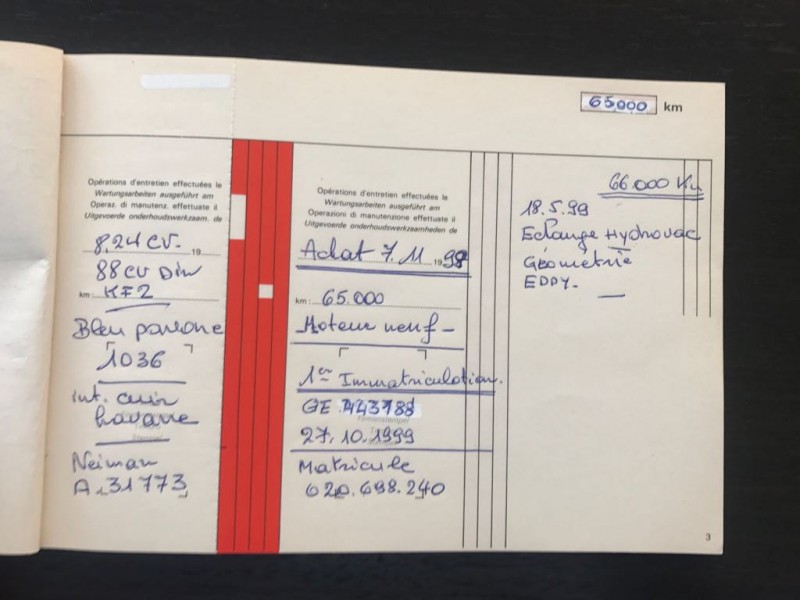 65000 km
Opérations d'entretien effectuées le
Wartungsarbeiten ausgeführt am
Operaz. di manutenz. effettuate il
Uitgevoerde onderhoudswerkzaam. de
8,24 CV. 19
88 CV Din
km: KF2
Bleu
1036
int. cuir
havane
Neiman
A.31773
Opérations d'entretien effectuées le
Wartungsarbeiten ausgeführt am
Operazioni di manutenzione effettuate il
Uitgevoerde onderhoudswerkzaamheden de
Achat 7.11 1998
km: 65.000
Moteur neuf -
1er Immatriculation.
GE 443788
27.10.1999
Matricule
620.698.240
66.000 Km
18.5.99
Echange Hydrovac
Géométrie
EDDY-
3